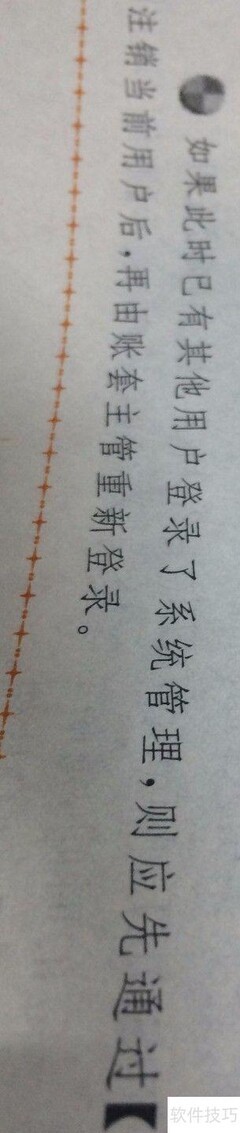 如果此时已有其他用户登录了系统管理，则应先通过【
注销当前用户后，再由账套主管重新登录。
软件技巧